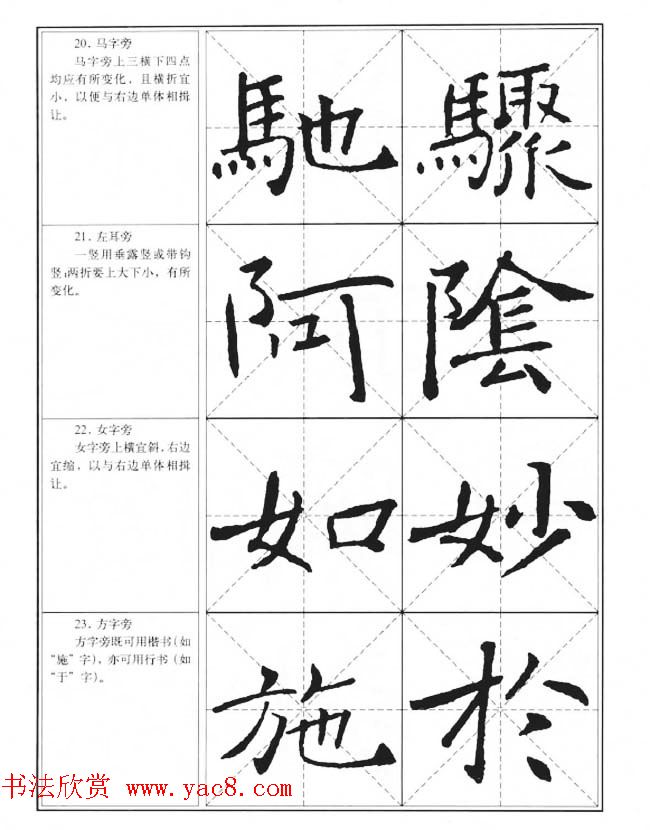 20. 马字旁
马字旁上三横下四点
均应有所变化，且横折宜
小，以便与右边单体相揖
让。
馳 驟
21. 左耳旁
一竖用垂露竖或带钩
竖；两折要上大下小，有所
变化。
阿 陰
22. 女字旁
女字旁上横宜斜，右边
宜缩，以与右边单体相揖
让。
如 妙
23. 方字旁
方字旁既可用楷书（如
“施”字），亦可用行书（如
“于”字）。
施 於
书法欣赏 www.yac8.com